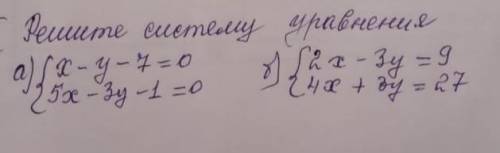 Решите систему уравнения
а) { x - y - 7 = 0 б) { 2x - 3y = 9
5x - 3y - 1 = 0 4x + 3y = 27